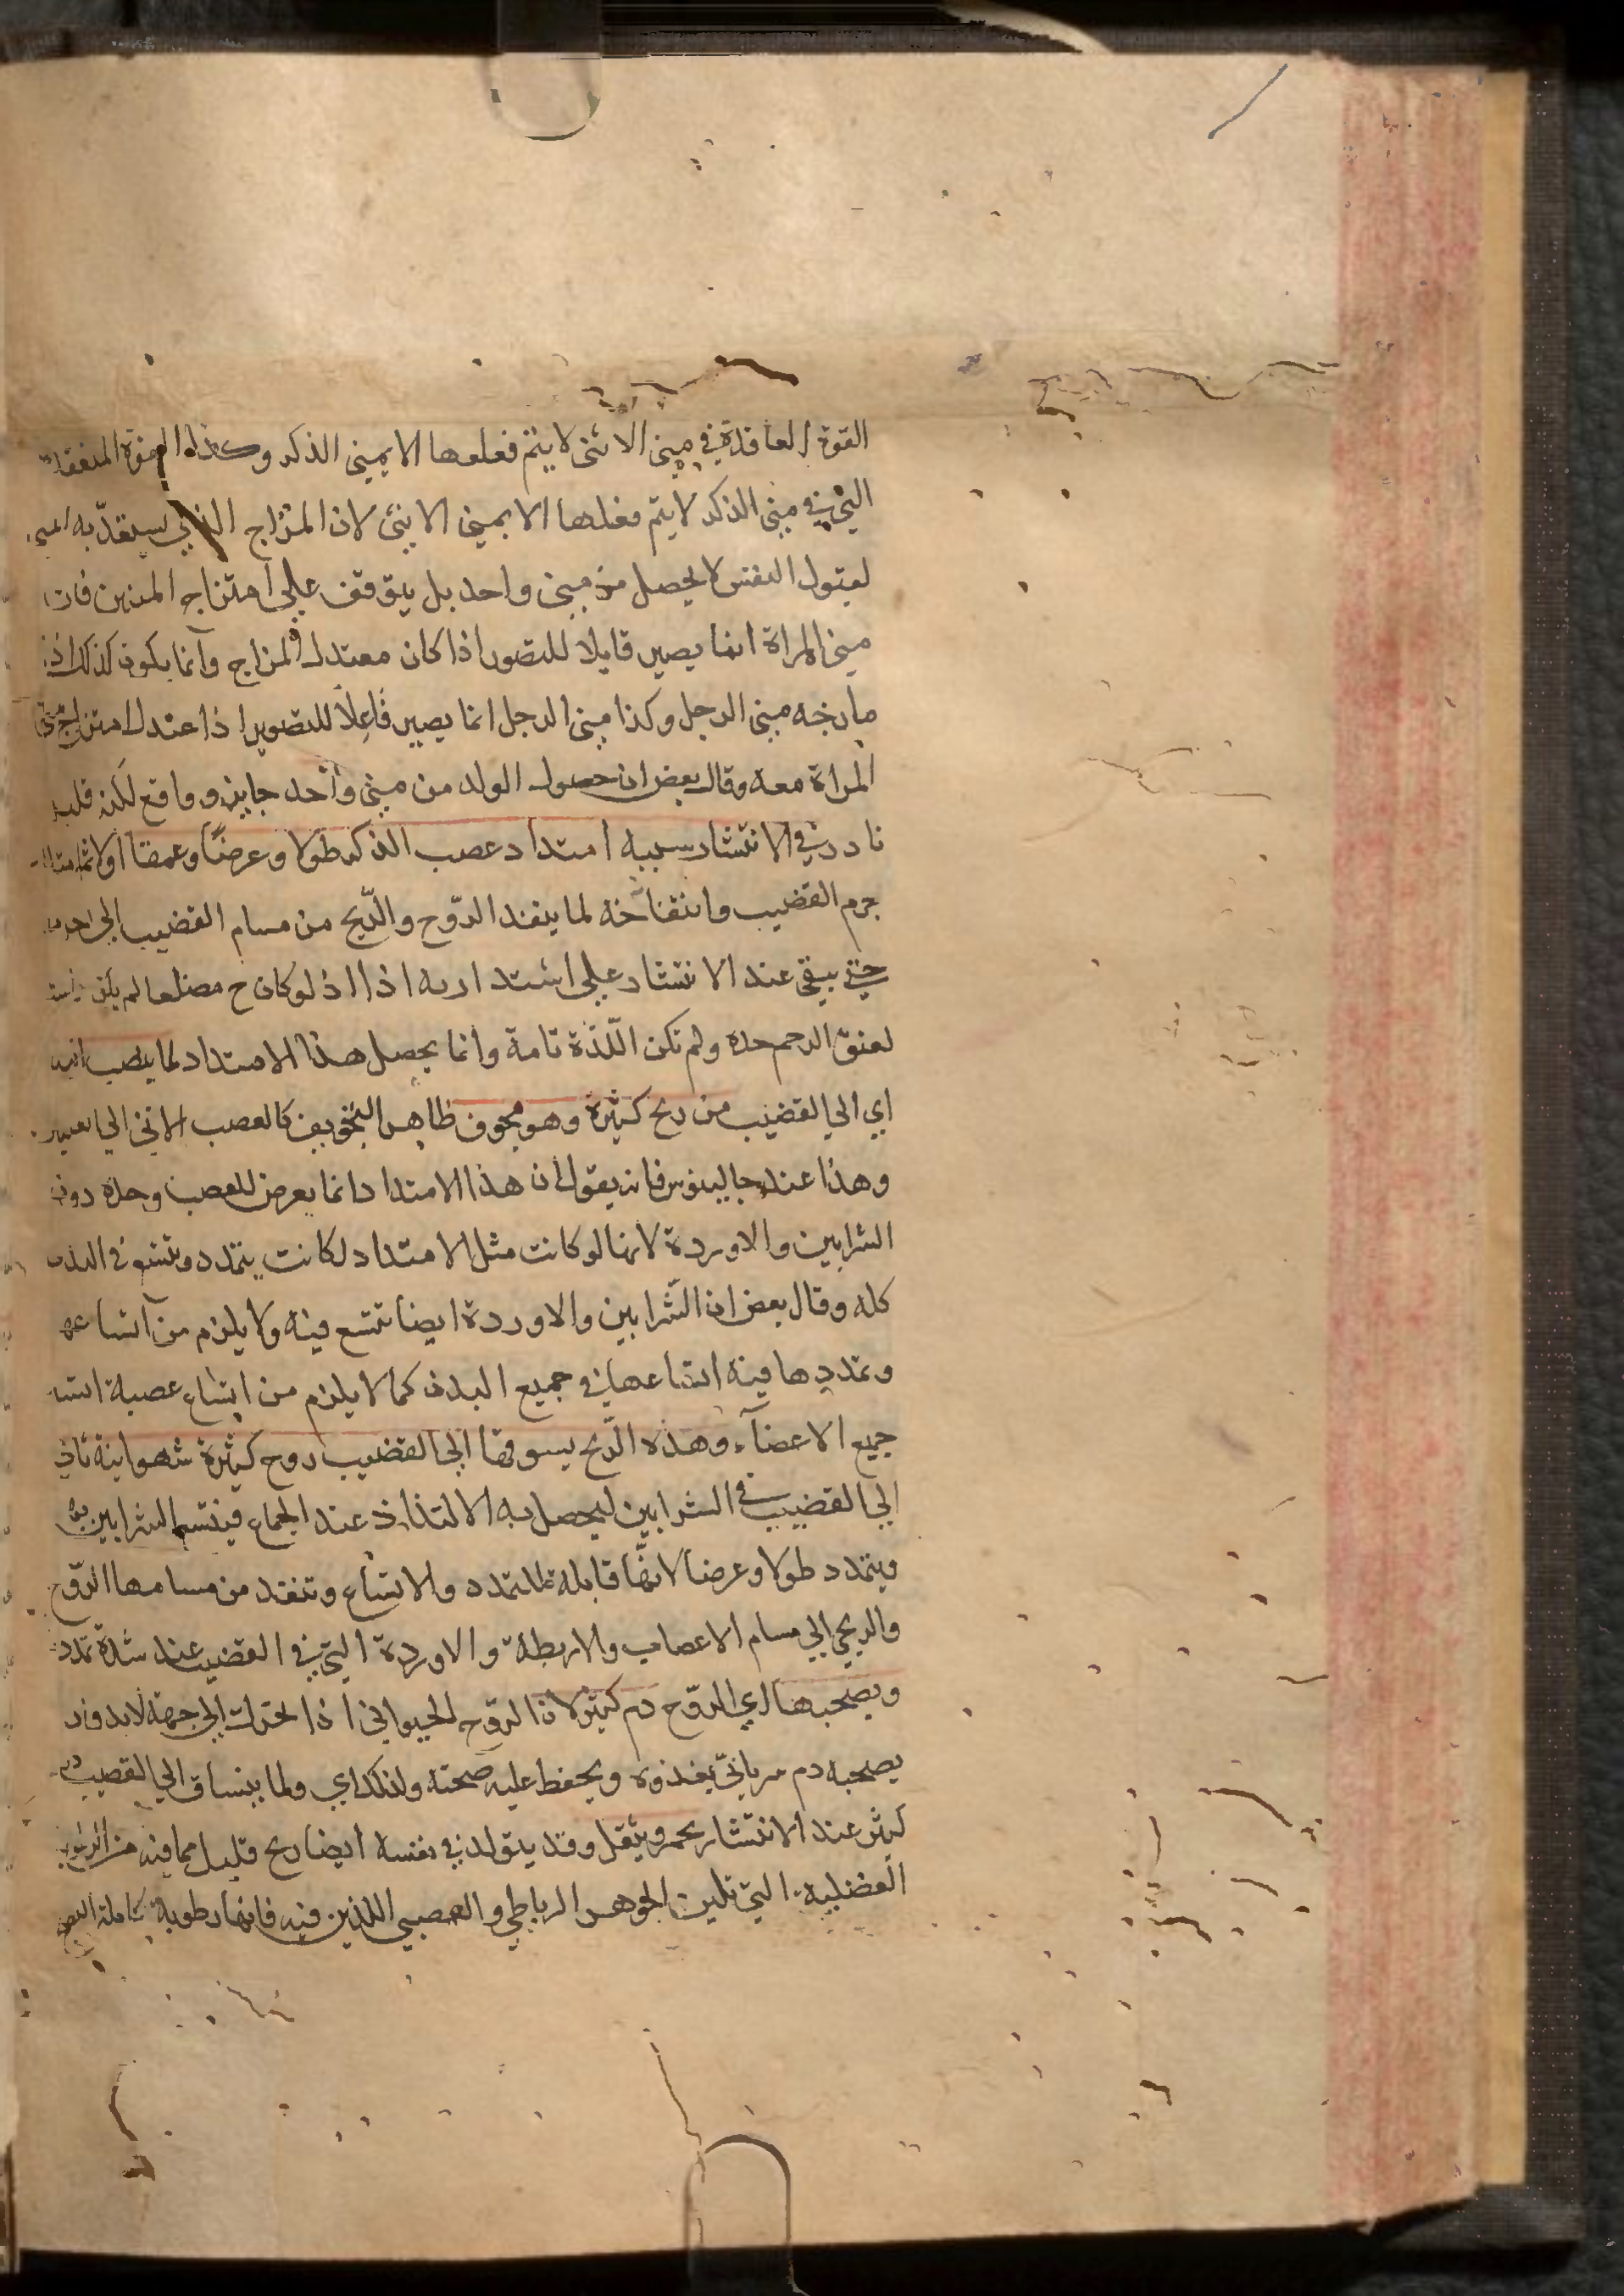 القوة العاقدة في مني الانثى لا يتم فعلها الا بمني الذكر وكذا القوة المنعقدة
التي في مني الذكر لا يتم فعلها الا بمني الانثى لان المزاج الذي يستعد به المني
لقبول النفس لا يحصل من مني واحد بل يتوقف على امتزاج المنيين فان
مني المراة انما يصير قابلا للتصور اذا كان معتدل المزاج وانما يكون كذلك اذا
مازجه مني الرجل وكذا مني الرجل انما يصير فاعلا للتصوير اذا عتدل امتزاج مني
المراة معه وقال بعض ان حصول الولد من مني واحد جايز وواقع لكنه قليل
نادر في الانتشار سببه امتداد عصب الذكر طولا وعرضا وعمقا اولا ثم امتداد
جرم القضيب وانتفاخه لما ينفذ الروح والريح من مسام القضيب الى
حتى يبقى عند الانتشار على استدارته اذا اذ لو كان ح مضلعا لم يكن
لعنق الرحم حده ولم تكن اللذة تامة وانما يحصل هذا الامتداد لما ينصب اليه
اي الى القضيب من ريح كثيرة وهو مجوف ظاهر التجويف كالعصب الاتي الى العين
وهذا عند جالينوس فانه يقول ان هذا الامتداد انما يعرض للعصب وحده دون
الشرايين والاوردة لانها لو كانت مثل الامتداد لكانت يتمدد وتتسع في البدن
كله وقال بعض ان الشرايين والاوردة ايضا تتسع فيه ولا يلزم من اتساعها
وتمددها فيه اتساعها في جميع البدن كما لا يلزم من اتساع عصبة اتساع
جميع الاعضآء وهذه الريح يسوقها الى القضيب روح كثيرة شهوانية تاتي
الى القضيب في الشرايين ليحصل به الالتذاذ عند الجماع فيتسع الشرايين
ويتمدد طولا وعرضا لانها قابلة للتمدد والاتساع وتنفذ من مسامها الروح
والريح الى مسام الاعصاب والاربطة والاوردة التي في القضيب عند شدة تمدد
ويصحبها اي الروح دم كثير لان الروح الحيواني اذا تحرك الى جهة لابد وان
يصحبه دم شرياني يغذوه ويحفظ عليه صحته ولذلك اي ولما ينساق الى القضيب دم
كثير عند الانتشار يحمر ويثقل وقد يتولد في نفسه ايضا ريح قليل مما فيه من الرطوبة
الفضلية التي تلين الجوهر الرباطي والعصبي اللذين فيه فانها رطوبة كاملة النضج